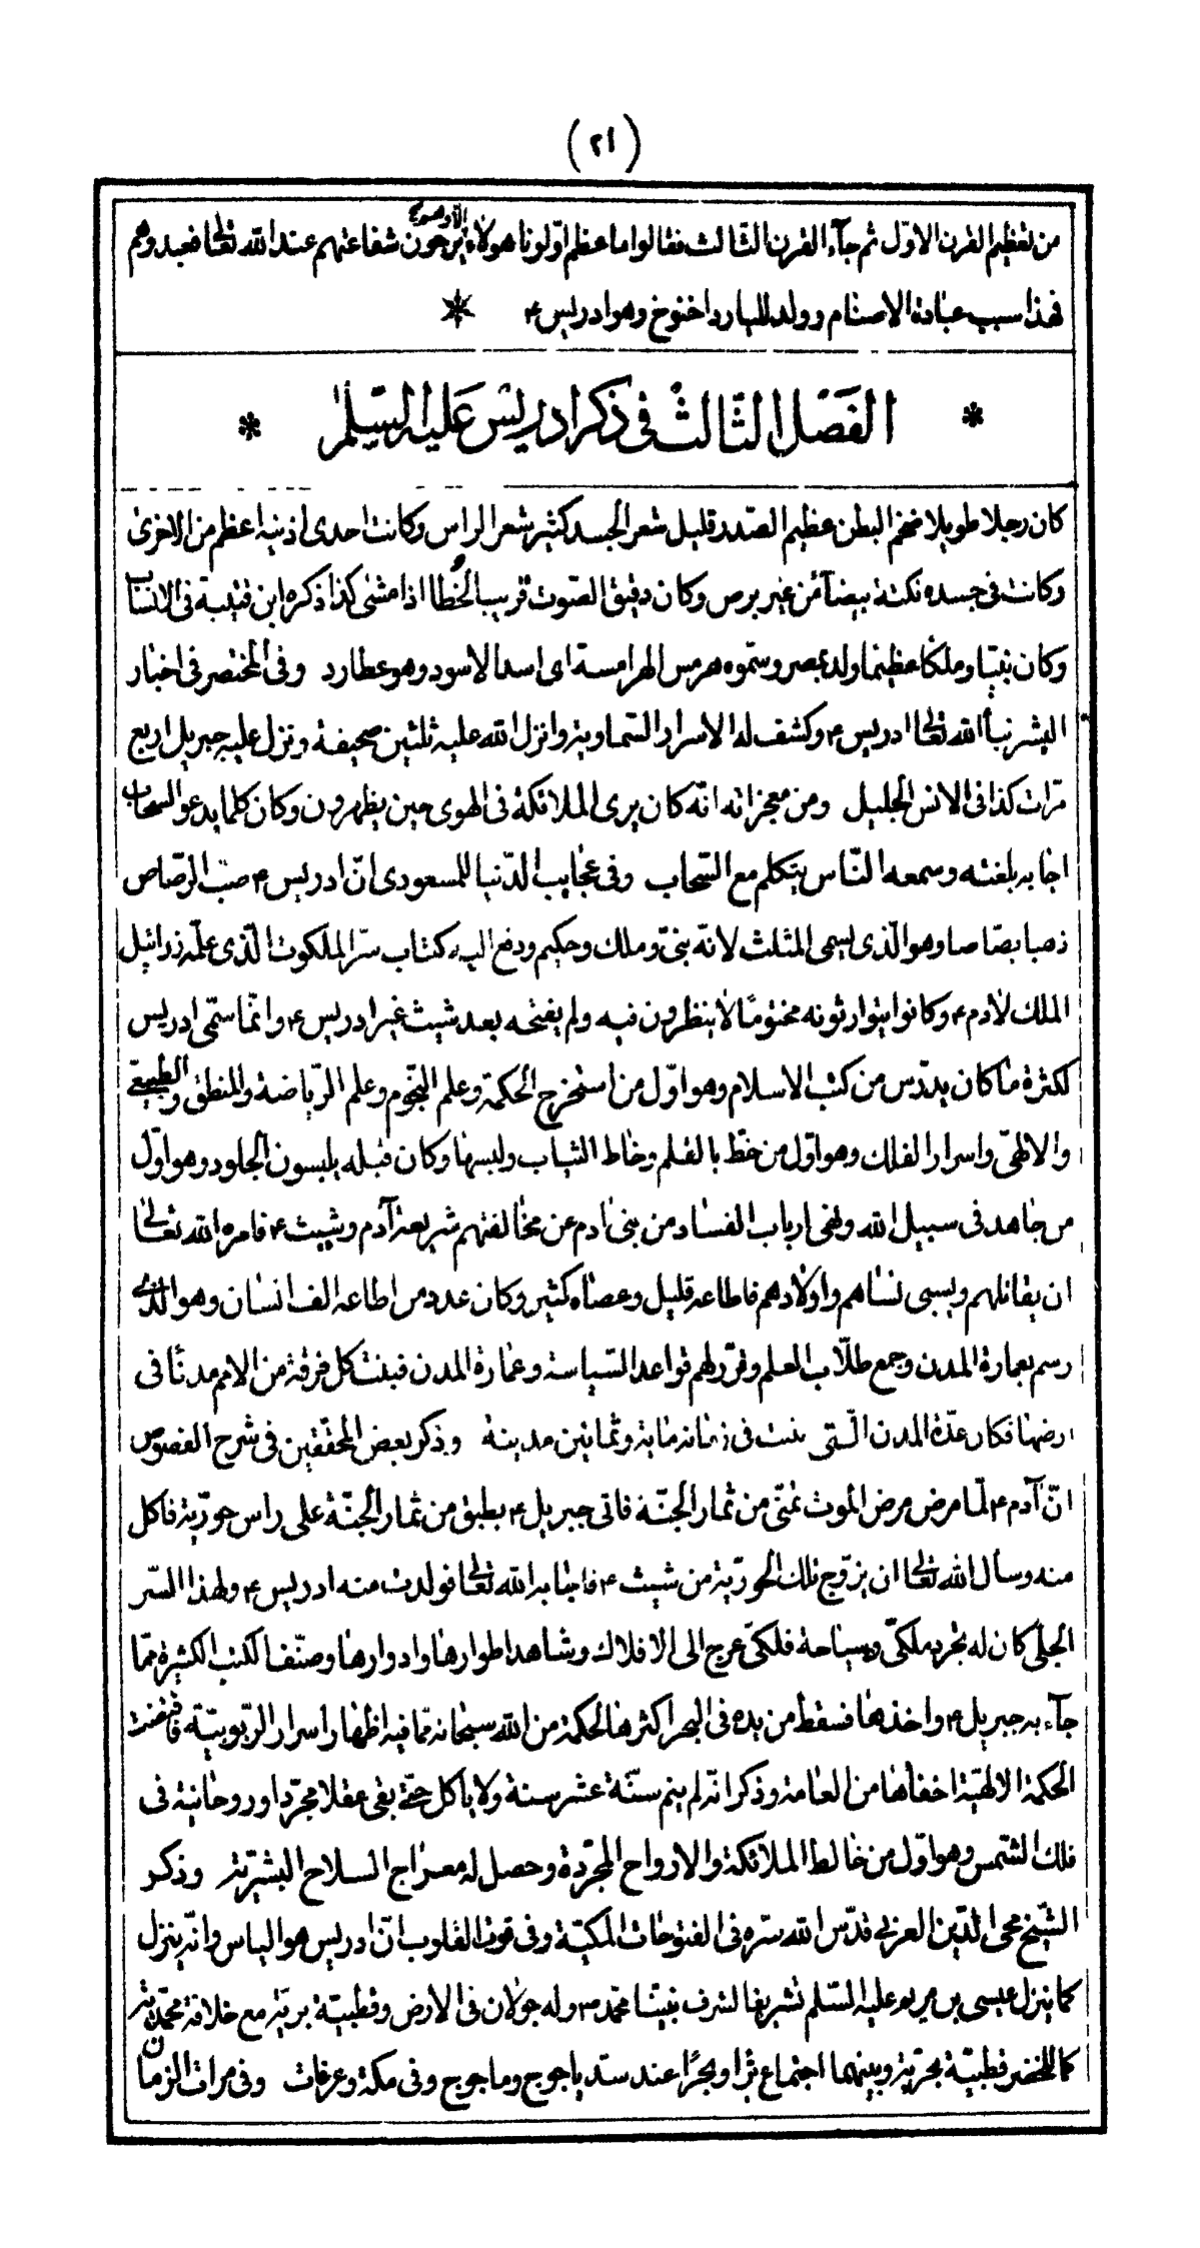 (٢١)
من تعظيم القرن الاوّل ثم جآء القرن الثّالث فقالوا ما عظم اوّلونا هولاء الّا وهم يرجون شفاعتهم عند الله تعالى فعبدوهم
فهذا سبب عبادة الاصنام وولد لليارد اخنوخ وهو ادريس ٢ *
* الفصل الثّالث فى ذكر ادريس عليه السّلم *
كان رجلا طويلا ضخم البطن عظيم الصّدر قليل شعر الجسد كثير شعر الراس وكانت احدى اذنيه اعظم من الاخرى
وكانت فى جسده نكتة بيضآء من غير برص وكان دقيق الصّوت قريب الخُطا اذا مشى كذا ذكره ابن قتيبة فى الانساب
وكان نبيّا وملكا عظيما ولد بمصر وسمّوه هرمس الهرامسة اى اسد الاسود وهو عطارد وفى المختصر فى اخبار
البشر نبأ الله تعالى ادريس ٢ وكشف له الاسرار السّماوية وانزل الله عليه ثلثين صحيفة ونزل عليه جبريل اربع
مرّات كذا فى الانس الجليل ومن معجزاته انّه كان يرى الملائكة فى الهوى حين يظهرون وكان كلما يدعو السحاب
اجابه بلغته وسمعه النّاس يتكلم مع السّحاب وفى عجايب الدّنيا للمسعودى انّ ادريس ٢ صبّ الرّصاص
ذهبا بصّاصا وهو الّذى يسمى المثلث لانّه نبىّ وملك وحكيم ودفع اليه كتاب سرّ الملكوت الّذى علّمه زرائيل
الملك لادم ٢ وكانوا يتوارثونه مختومًا لا ينظرون فيه ولم يفتحه بعد شيث غير ادريس ٢ وانّما سمّى ادريس
لكثرة ما كان يدرّس من كتب الاسلام وهو اوّل من استخرج الحكمة وعلم النجّوم وعلم الرّياضة والمنطق والطبيعىّ
والالهىّ واسرار الفلك وهو اوّل من خطّ بالقلم وخاط الثياب ولبسها وكان قبله يلبسون الجلود وهو اوّل
من جاهد فى سبيل الله ونهى ارباب الفساد من بنى ادم عن مخالفتهم شريعة آدم وشيث ٢ فامره الله تعالى
ان يقاتلهم ويسبى نساهم واولادهم فاطاعه قليل وعصاه كثير وكان عدد من اطاعه الف انسان وهو الّذى
رسم بعمارة المدن وجمع طلّاب العلم وقرّر لهم قواعد السّياسة وعمارة المدن فبنت كل فرقة من الامم مدنًا فى
ارضها فكان عدّة المدن الّتى بنت فى زمانه ماية وثمانين مدينة وذكر بعض المحقّقين فى شرح الفصوص
انّ آدم ٢ لمّا مرض مرض الموت تمنّى من ثمار الجنّة فاتى جبريل ٢ بطبق من ثمار الجنّة على راس حوريّة فاكل
منه وسأل الله تعالى ان يزوّج تلك الحوريّة من شيث ٢ فاجابه الله تعالى فولدت منه ادريس ٢ ولهذا السّر
الجلى كان له تجرد ملكىّ وسياحة فلكىّ عرج الى الافلاك وشاهد اطوارها وادوارها وصنّف الكتب الكثيرة ممّا
جآء به جبريل ٢ واخذها فسقط من يده فى البحر اكثرها لحكمة من الله سبحانه ممّا فيه اظهار اسرار الرّبوبيّة فاقتضت
الحكمة الالهيّة اخفاءها من العامة وذكر انّه لم ينم ستّة عشر سنة ولا ياكل حتّى بقى عقلا مجرّدا وروحانية فى
فلك الشمس وهو اوّل من خالط الملائكة والارواح المجرّدة وحصل له معراج انسلاخ البشريّة وذكر
الشّيخ محى الدّين العربى قدّس الله سرّه فى الفتوحات المكيّة وفى قوت القلوب انّ ادريس هو الياس وانّه ينزل
كما ينزل عيسى بن مريم عليه السّلم تشريفا لشرف نبيّنا محمّد ٢ وله جولان فى الارض وقطبيّة بريّة مع خلافة محمّديّة
كما للخضر قطبيّة بحريّة وبينهما اجتماع برّا وبحرًا عند سدّ ياجوج وماجوج وفى مكة وعرفات وفى مرات الزمان